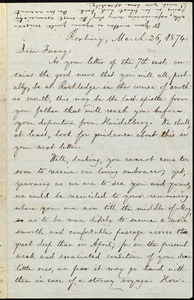 Roxbury, March 26, 1874.
Dear Fanny:
As your letter of the 7th inst. con-
tains the good news that you will all, prob-
ably, be at Rutledge in the course of a month
or so, this may be the last epistle from
your father that will reach you before
your departure from Heidelberg. We shall
at least, look for guidance about this in
your next letter.
Well, darling, you cannot come too
soon to receive our loving embraces; yet,
yearning as we are to see you and yours,
we could be reconciled to your remaining
where you are now till the middle of May,
so as to be more likely to secure a more
smooth and comfortable passage across the
great deep than in April; for in the present
weak and emaciated condition of your dear
little ones, we fear it may go hard with
them in case of a stormy voyage. How-